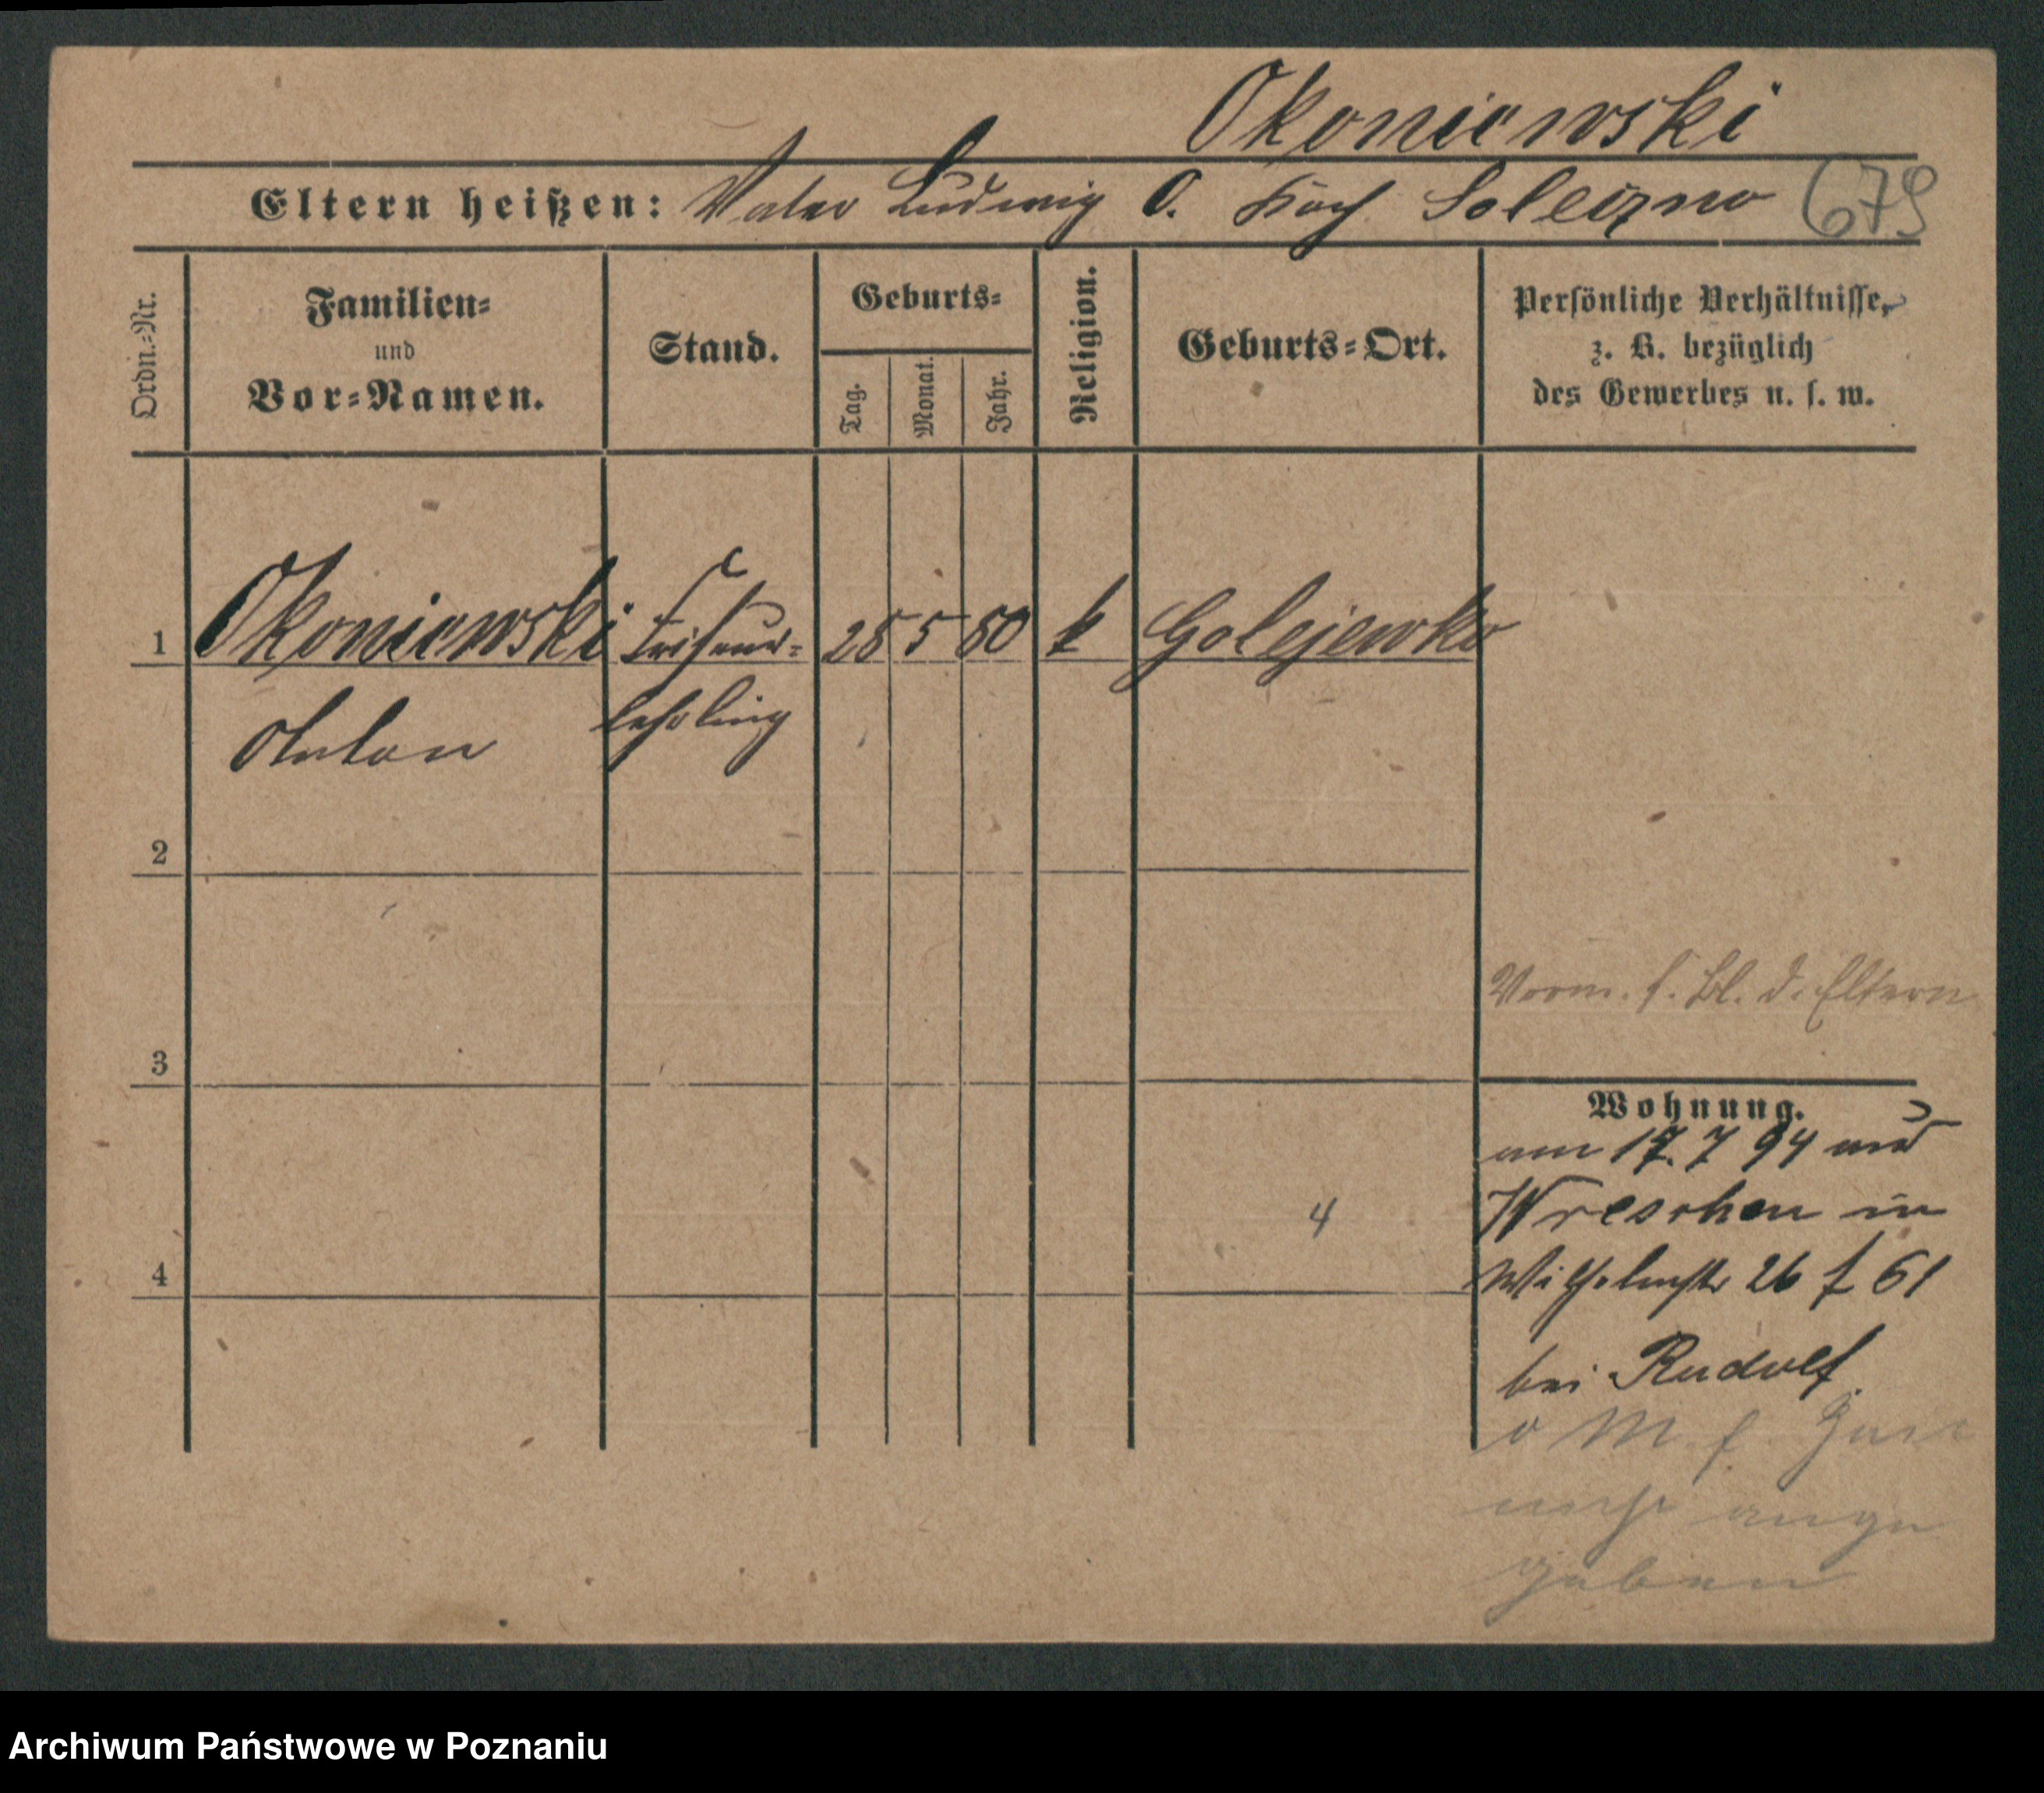 Okoniewski
Eltern heißen: Vater Ludwig O. Koch Soleizno 679
Ordn.-Nr.
Familien-
und
Vor-Namen.
Stand.
Geburts-
Tag.
Monat.
Jahr.
Religion.
Geburts-Ort.
Persönliche Verhältnisse,
z. B. bezüglich
des Gewerbes u. s. w.
1 Okoniewski Friseur- 28 5 80 k Golejewko
Anton lehrling
2
Vorm. s. Bl. d. Eltern
3
Wohnung.
am 17. 7 94 aus
4 Wreschen in
4 Wilhelmstr 26 f 61
bei Rudolf
o M f
nicht ange
geben
Archiwum Państwowe w Poznaniu